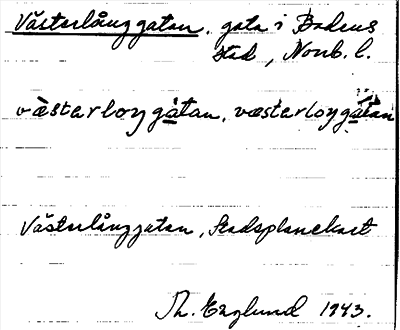 Västerlånggatan, gata i Bodens
stad, Norrb. l.
västerloŋgàtan, væsterloŋgatan
Västerlånggatan, Stadsplanekart
Th. Englund 1943.